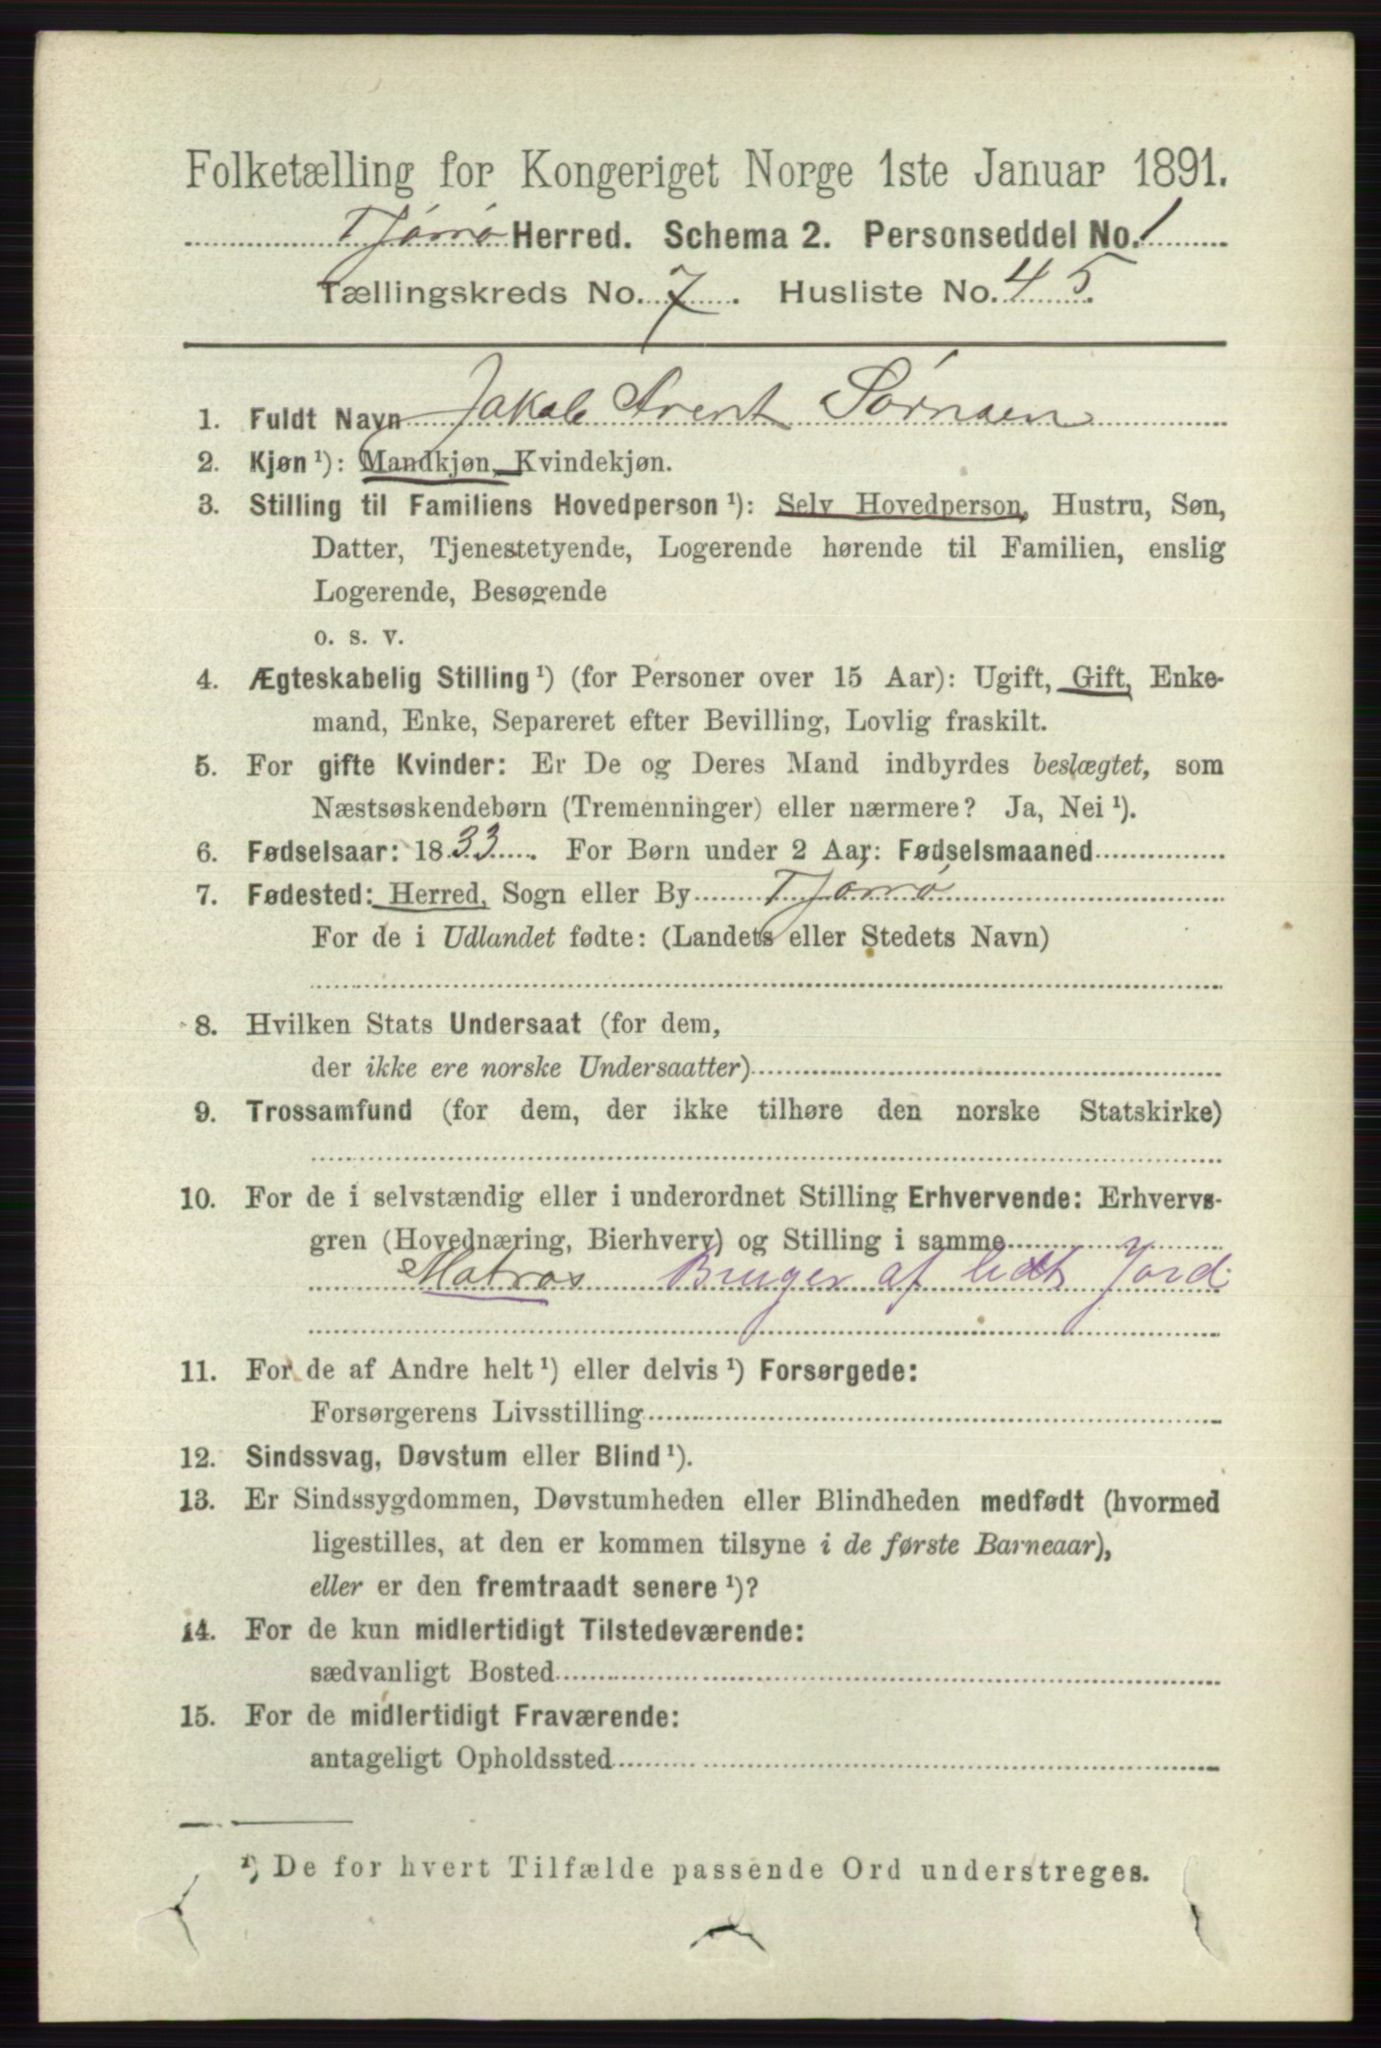 Folketælling for Kongeriget Norge 1ste Januar 1891.
Tjømø Herred. Schema 2. Personseddel No. 1
Tællingskreds No. 7. Husliste No. 45.
1. Fuldt Navn Jakob Arent Sørnsen
2. Kjøn¹): Mandkjøn, Kvindekjøn.
3. Stilling til Familiens Hovedperson¹): Selv Hovedperson, Hustru, Søn,
Datter, Tjenestetyende, Logerende hørende til Familien, enslig
Logerende, Besøgende
o. s. v.
4. Ægteskabelig Stilling¹) (for Personer over 15 Aar): Ugift, Gift, Enke-
mand, Enke, Separeret efter Bevilling, Lovlig fraskilt.
5. For gifte Kvinder: Er De og Deres Mand indbyrdes beslægtet, som
Næstsøskendebørn (Tremenninger) eller nærmere? Ja, Nei¹).
6. Fødselsaar: 1833. For Børn under 2 Aar: Fødselsmaaned
7. Fødested: Herred, Sogn eller By Tjømø
For de i Udlandet fødte: (Landets eller Stedets Navn)
8. Hvilken Stats Undersaat (for dem,
der ikke ere norske Undersaatter)
9. Trossamfund (for dem, der ikke tilhøre den norske Statskirke)
10. For de i selvstændig eller i underordnet Stilling Erhvervende: Erhvervs-
gren (Hovednæring, Bierhverv) og Stilling i samme
Matros Bruger af lidt Jord.
11. For de af Andre helt¹) eller delvis¹) Forsørgede:
Forsørgerens Livsstilling
12. Sindssvag, Døvstum eller Blind¹).
13. Er Sindssygdommen, Døvstumheden eller Blindheden medfødt (hvormed
ligestilles, at den er kommen tilsyne i de første Barneaar),
eller er den fremtraadt senere¹)?
14. For de kun midlertidigt Tilstedeværende:
sædvanligt Bosted
15. For de midlertidigt Fraværende:
antageligt Opholdssted
¹) De for hvert Tilfælde passende Ord understreges.